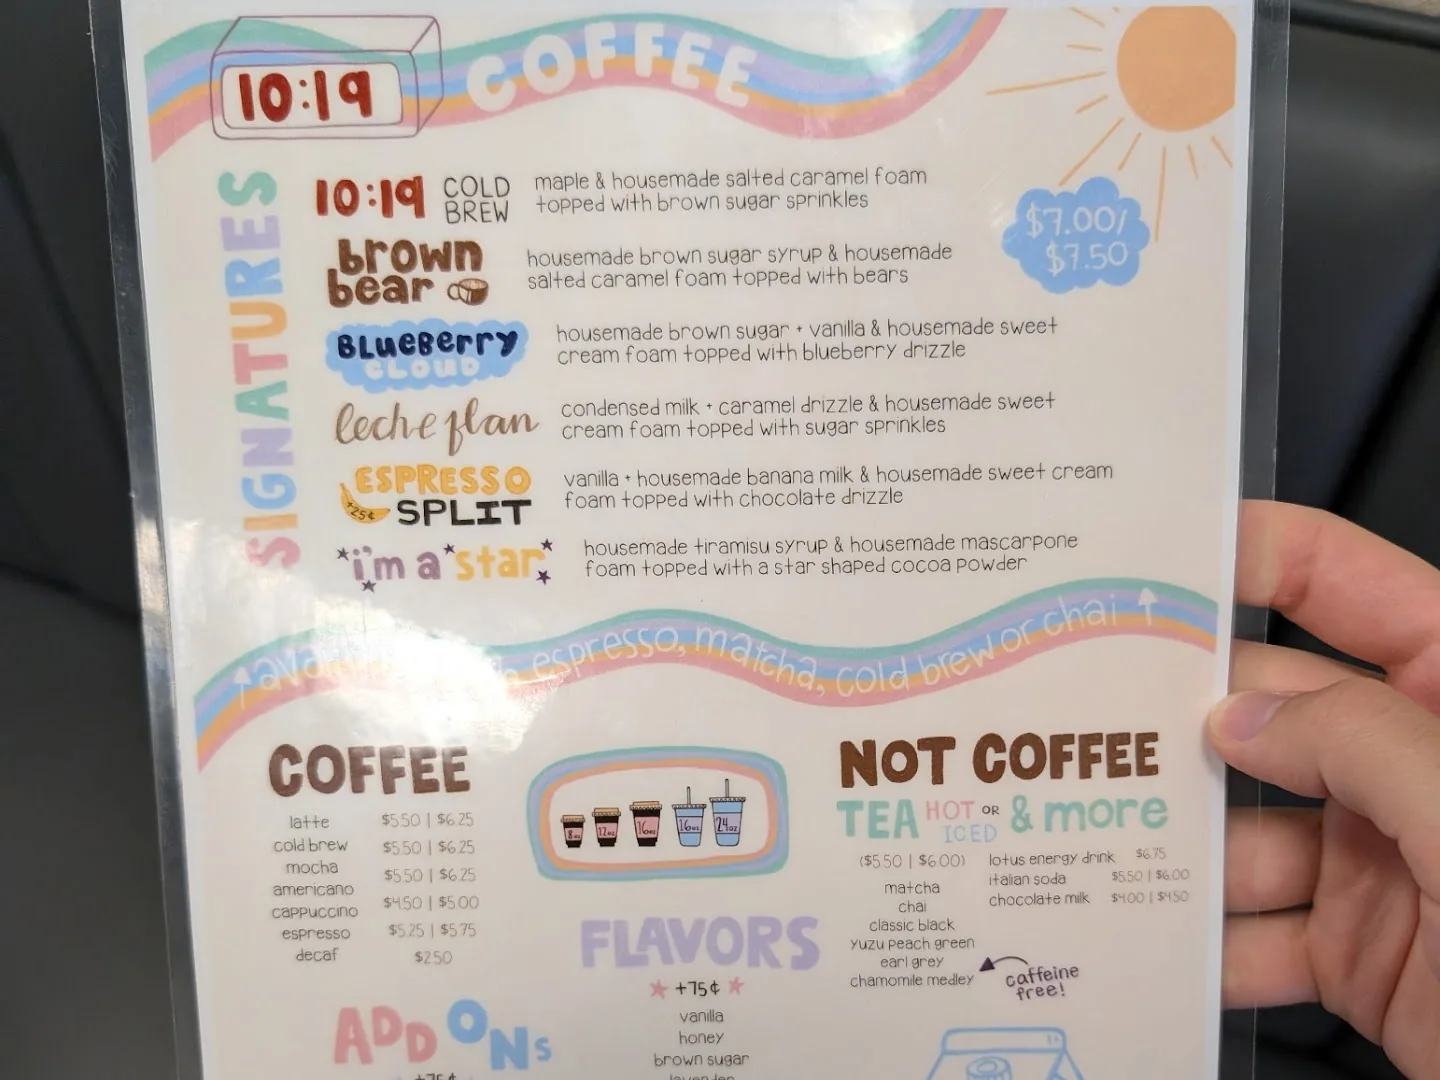 10:19
COFFEE
SIGNATURES
10:19 COLD BREW
maple & housemade salted caramel foam
topped with brown sugar sprinkles
$7.00/
$7.50
brown
bear
housemade brown sugar syrup & housemade
salted caramel foam topped with bears
BLUEBERRY
CLOUD
housemade brown sugar + vanilla & housemade sweet
cream foam topped with blueberry drizzle
leche flan
condensed milk + caramel drizzle & housemade sweet
cream foam topped with sugar sprinkles
ESPRESSO
SPLIT
+25¢
vanilla + housemade banana milk & housemade sweet cream
foam topped with chocolate drizzle
i'm a star
housemade tiramisu syrup & housemade mascarpone
foam topped with a star shaped cocoa powder
espresso, matcha, cold brew or chai
COFFEE
latte $5.50 | $6.25
cold brew $5.50 | $6.25
mocha $5.50 | $6.25
americano $4.50 | $5.00
cappuccino $5.25 | $5.75
espresso $2.50
decaf
8oz 12oz 16oz 16oz 24oz
NOT COFFEE
TEA HOT OR ICED & more
($5.50 | $6.00)
matcha
chai
classic black
yuzu peach green
earl grey
chamomile medley
caffeine
free!
lotus energy drink $6.75
italian soda $5.50 | $6.00
chocolate milk $4.00 | $4.50
FLAVORS
+75¢
vanilla
honey
brown sugar
lavender
ADD ONs
+75¢